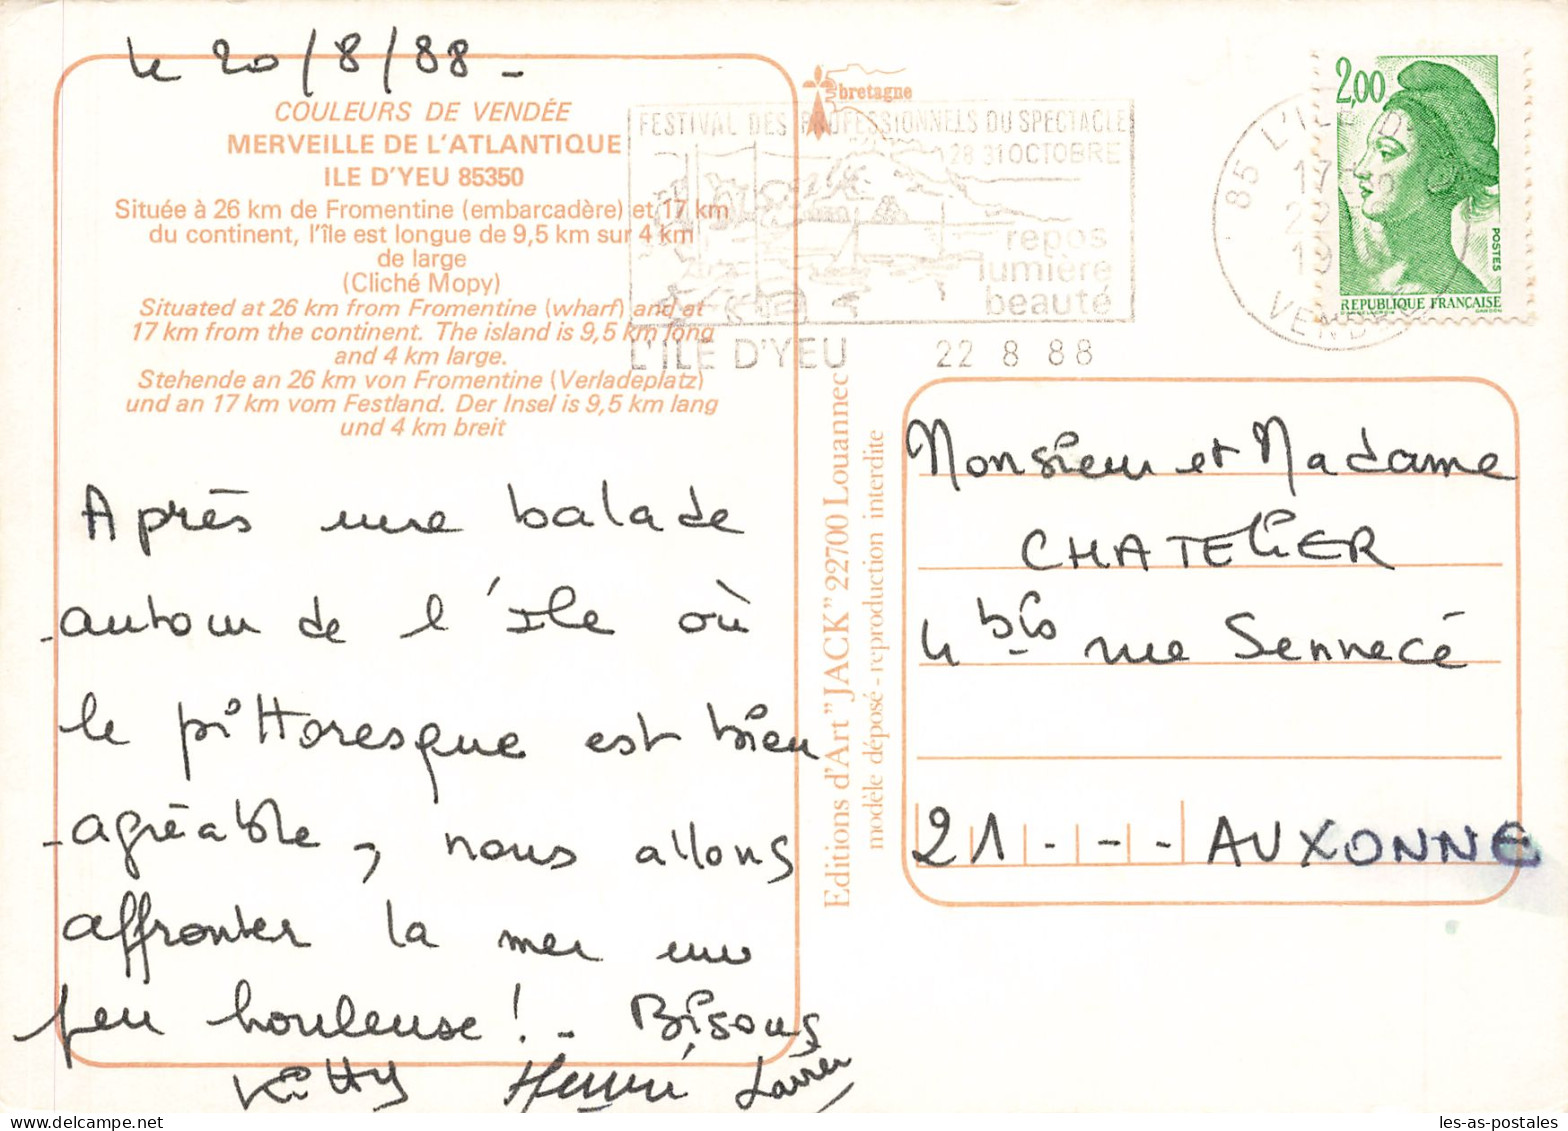 le 20/8/88 -
COULEURS DE VENDÉE
MERVEILLE DE L'ATLANTIQUE
ILE D'YEU 85350
Située à 26 km de Fromentine (embarcadère) et 17 km
du continent, l'île est longue de 9,5 km sur 4 km
de large
(Cliché Mopy)
Situated at 26 km from Fromentine (wharf) and at
17 km from the continent. The island is 9,5 km long
and 4 km large.
Stehende an 26 km von Fromentine (Verladeplatz)
und an 17 km vom Festland. Der Insel is 9,5 km lang
und 4 km breit
Après une balade
autour de l'Ile où
le pittoresque est bien
agréable, nous allons
affronter la mer un
peu houleuse ! - Bisous
Kitty Henri
bretagne
FESTIVAL DES PROFESSIONNELS DU SPECTACLE
28 31 OCTOBRE
repos
lumière
beauté
L'ILE D'YEU 22 8 88
Editions d'Art "JACK" 22700 Louannec
modèle déposé - reproduction interdite
85 L'ILE D'
17
VENDEE
2,00
POSTES
REPUBLIQUE FRANÇAISE
GANDON
Monsieur et Madame
CHATELIER
4 bis rue Sennecé
21 - - - AUXONNE
les-as-postales